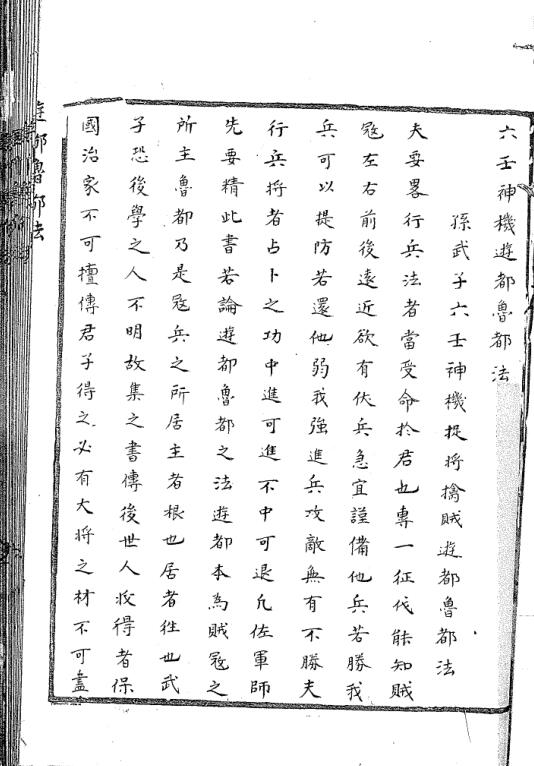 六壬神機遊都魯都法
孫武子六壬神機捉將擒賊遊都魯都法
夫要畧行兵法者當受命於君也專一征伐能知賊
寇左右前後遠近欲有伏兵急宜謹備他兵若勝我
兵可以提防若還他弱我強進兵攻敵無有不勝夫
行兵將者占卜之功中進可進不中可退凡佐軍師
先要精此書若論遊都魯都之法遊都本為賊寇之
所主魯都乃是寇兵之所居主者根也居者徃也武
子恐後學之人不明故集之書傳後世人收得者保
國治家不可擅傳君子得之必有大將之材不可盡
遊都魯都法